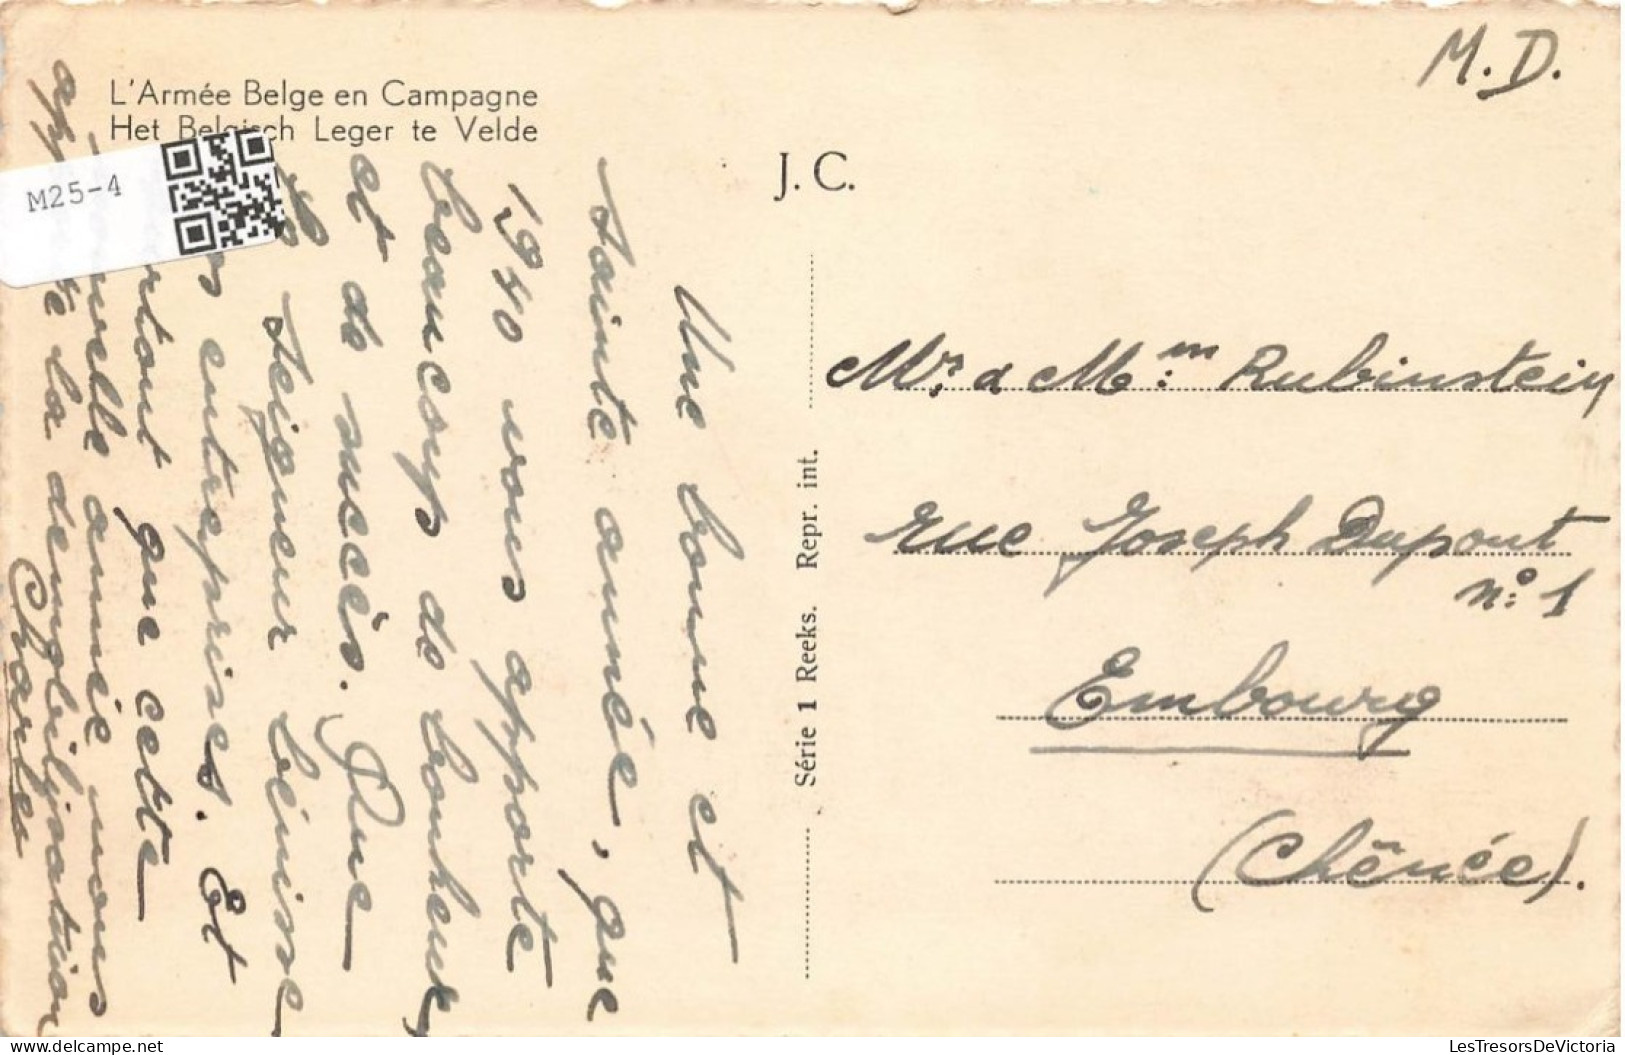 L'Armée Belge en Campagne
Het Belgisch Leger te Velde
M25-4
M. D.
J. C.
Une bonne et
sainte année, que
1940 vous apporte
beaucoup de bonheur
et de succès. Que
le Seigneur bénisse
entreprises. Et
surtout que cette
nouvelle année nous
apporte la démobilisation
Charles
Série 1 Reeks. Repr. int.
Mr. & M.me Rubinstein
rue Joseph Dupont
n:° 1
Embourg
(Chênée).
delcampe.net
LesTresorsDeVictoria